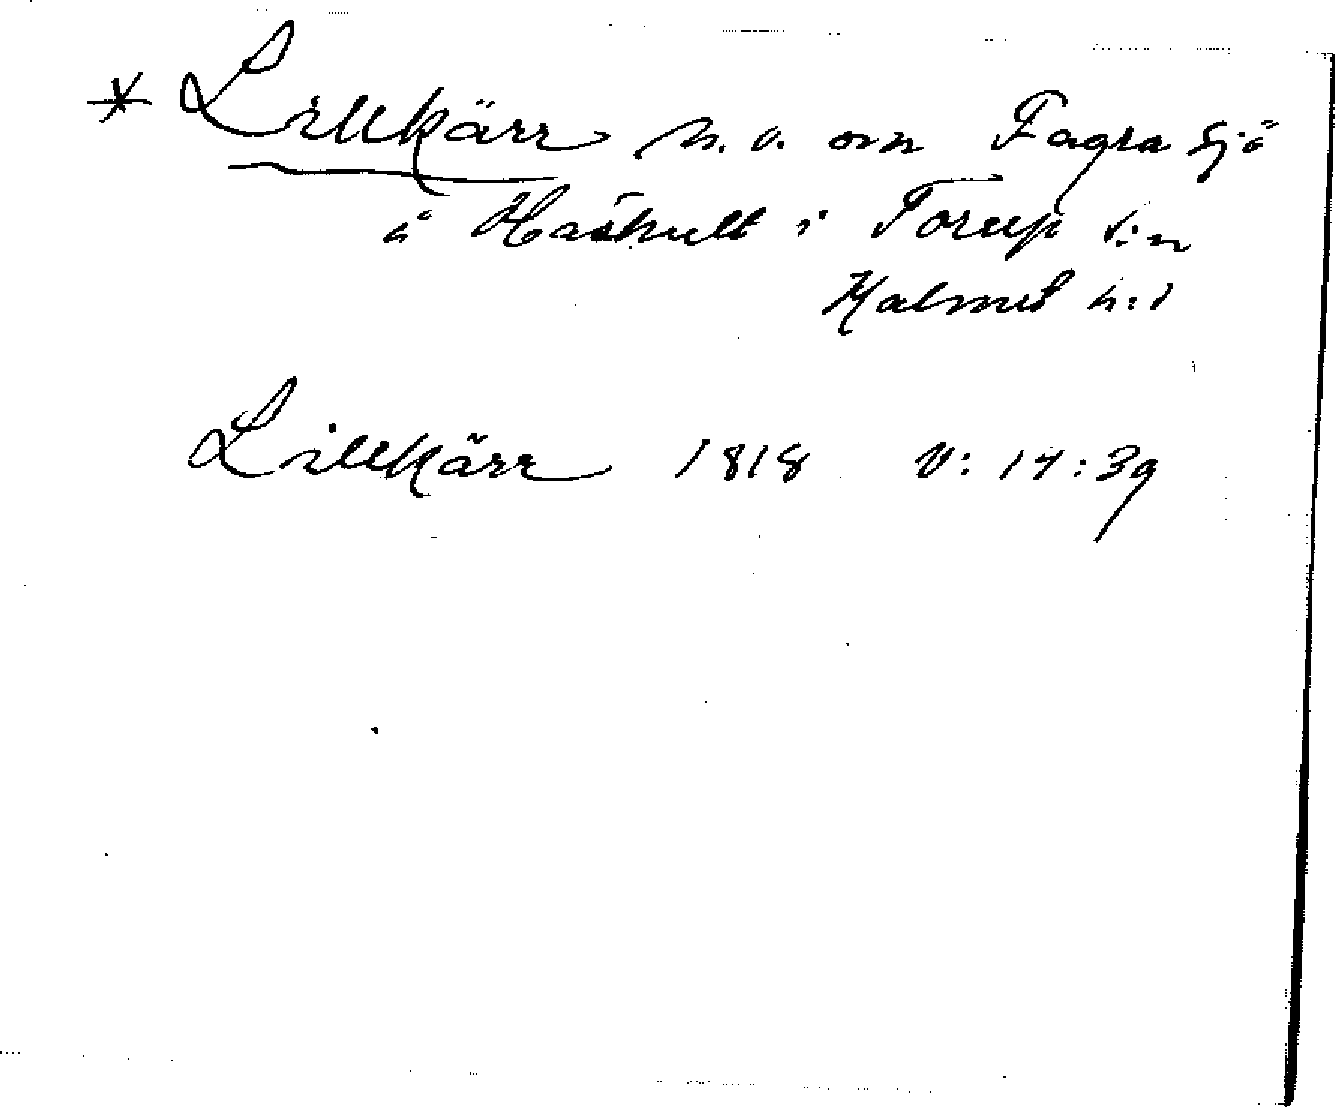 * Lillkärr n. o. om Fagra sjö
å Hashult i Torup s:n
Halmst h:d
Lillkärr 1818 V: 14: 39